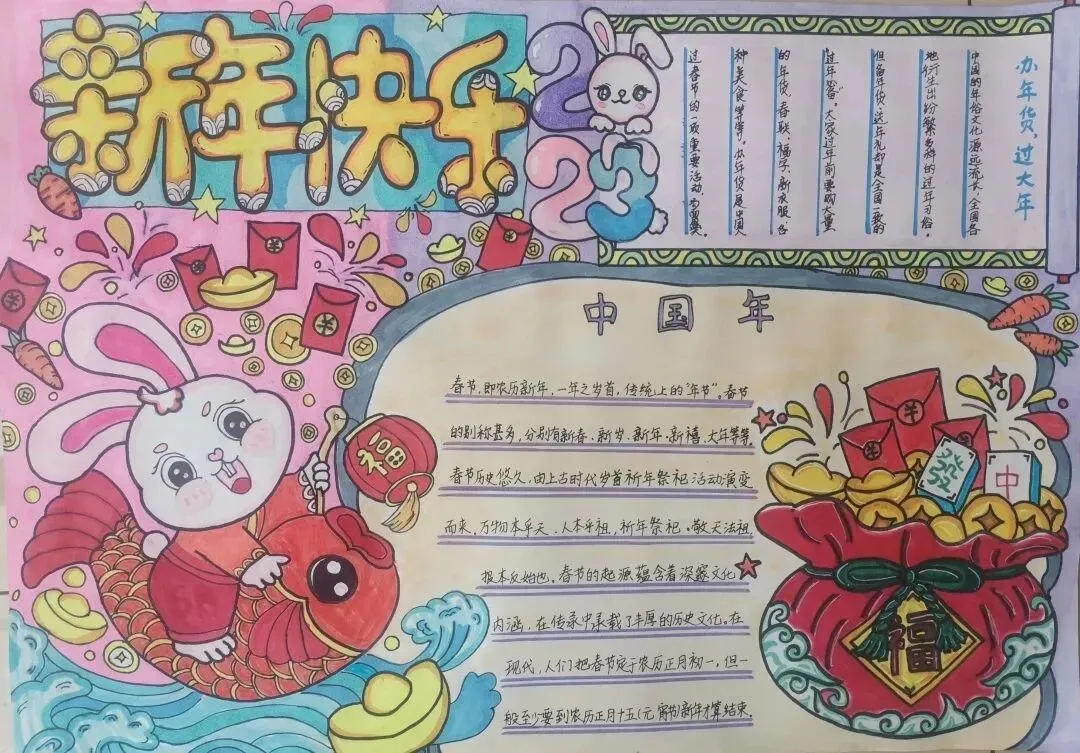 新年快乐
2023
办年货,过大年
中国的年俗文化源远流长,全国各
地衍生出纷繁多种的过年习俗。
但备年货、送年礼却是全国一致的
过年"必备"。大家过年前要购大量
的年货,春联、福字、新衣服、各
种美食等等。办年货是中国人
过春节的一项重要活动。
中国年
春节,即农历新年,一年之岁首,传统上的"年节"。春节
的别称甚多,分别有新春、新岁、新年、新禧、大年等等。
春节历史悠久,由上古时代岁首祈年祭祀活动演变
而来,万物本乎天、人本乎祖,祈年祭祀、敬天法祖,
报本反始也。春节的起源蕴含着深邃文化
内涵,在传承中承载了丰厚的历史文化。在
现代,人们把春节定于农历正月初一,但一
般至少要到农历正月十五(元宵节)新年才算结束。
福
發
中
福